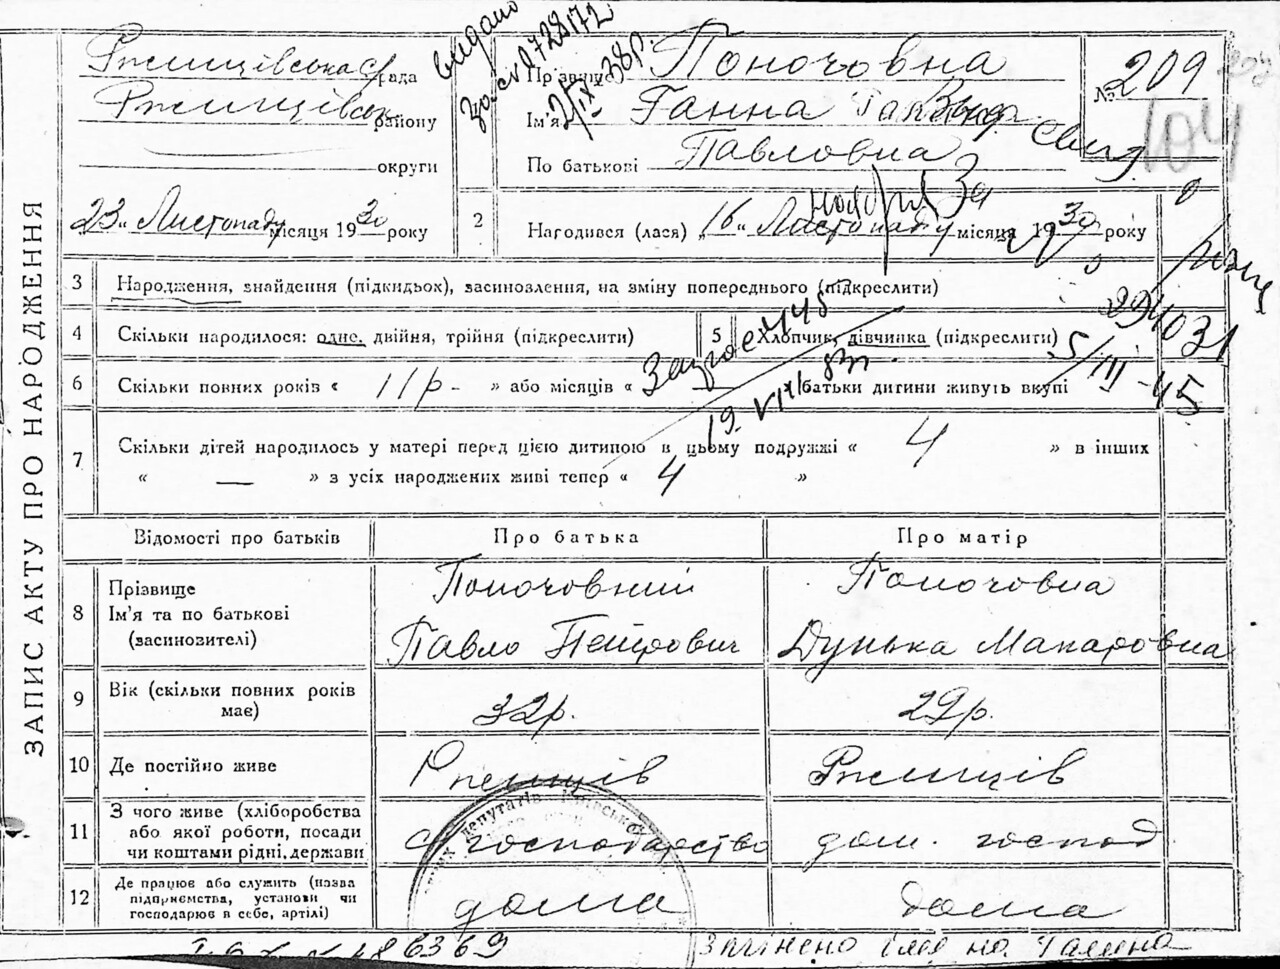 ЗАПИС АКТУ ПРО НАРОДЖЕННЯ
Ржищівська с/рада
Ржищівськ. району
округи
23 „ Листопаду місяця 1930 року
видано
2/IX 38р.
Прізвище Поночовна
Ім'я Ганна
По батькові Павловна
№ 209
104
2 Народився (лася) „ 16 “ Листопаду місяця 1930 року
ноября
3 Народження, знайдення (підкидьок), засиновлення, на зміну попереднього (підкреслити)
4 Скільки народилося: одне, двійня, трійня (підкреслити)
5 Хлопчик, дівчинка (підкреслити)
294031
5/III-45
6 Скільки повних років « 11р - » або місяців « — » батьки дитини живуть вкупі
19.VII
7 Скільки дітей народилось у матері перед цією дитиною в цьому подружжі « 4 » в інших
« — » з усіх народжених живі тепер « 4 »
Відомості про батьків Про батька Про матір
8 Прізвище
Ім'я та по батькові
(засиновителі)
Поночовний
Павло Петрович
Поночовна
Дунька Макаровна
9 Вік (скільки повних років
має)
32р. 29р.
10 Де постійно живе Ржищів Ржищів
11 З чого живе (хліборобства
або якої роботи, посади
чи коштами рідні, держави
с господарство дом. господ
12 Де працює або служить (назва
підприємства, установи чи
господарює в себе, артілі)
дома дома
депутатів Київської
86369
Змінено імя на Галина